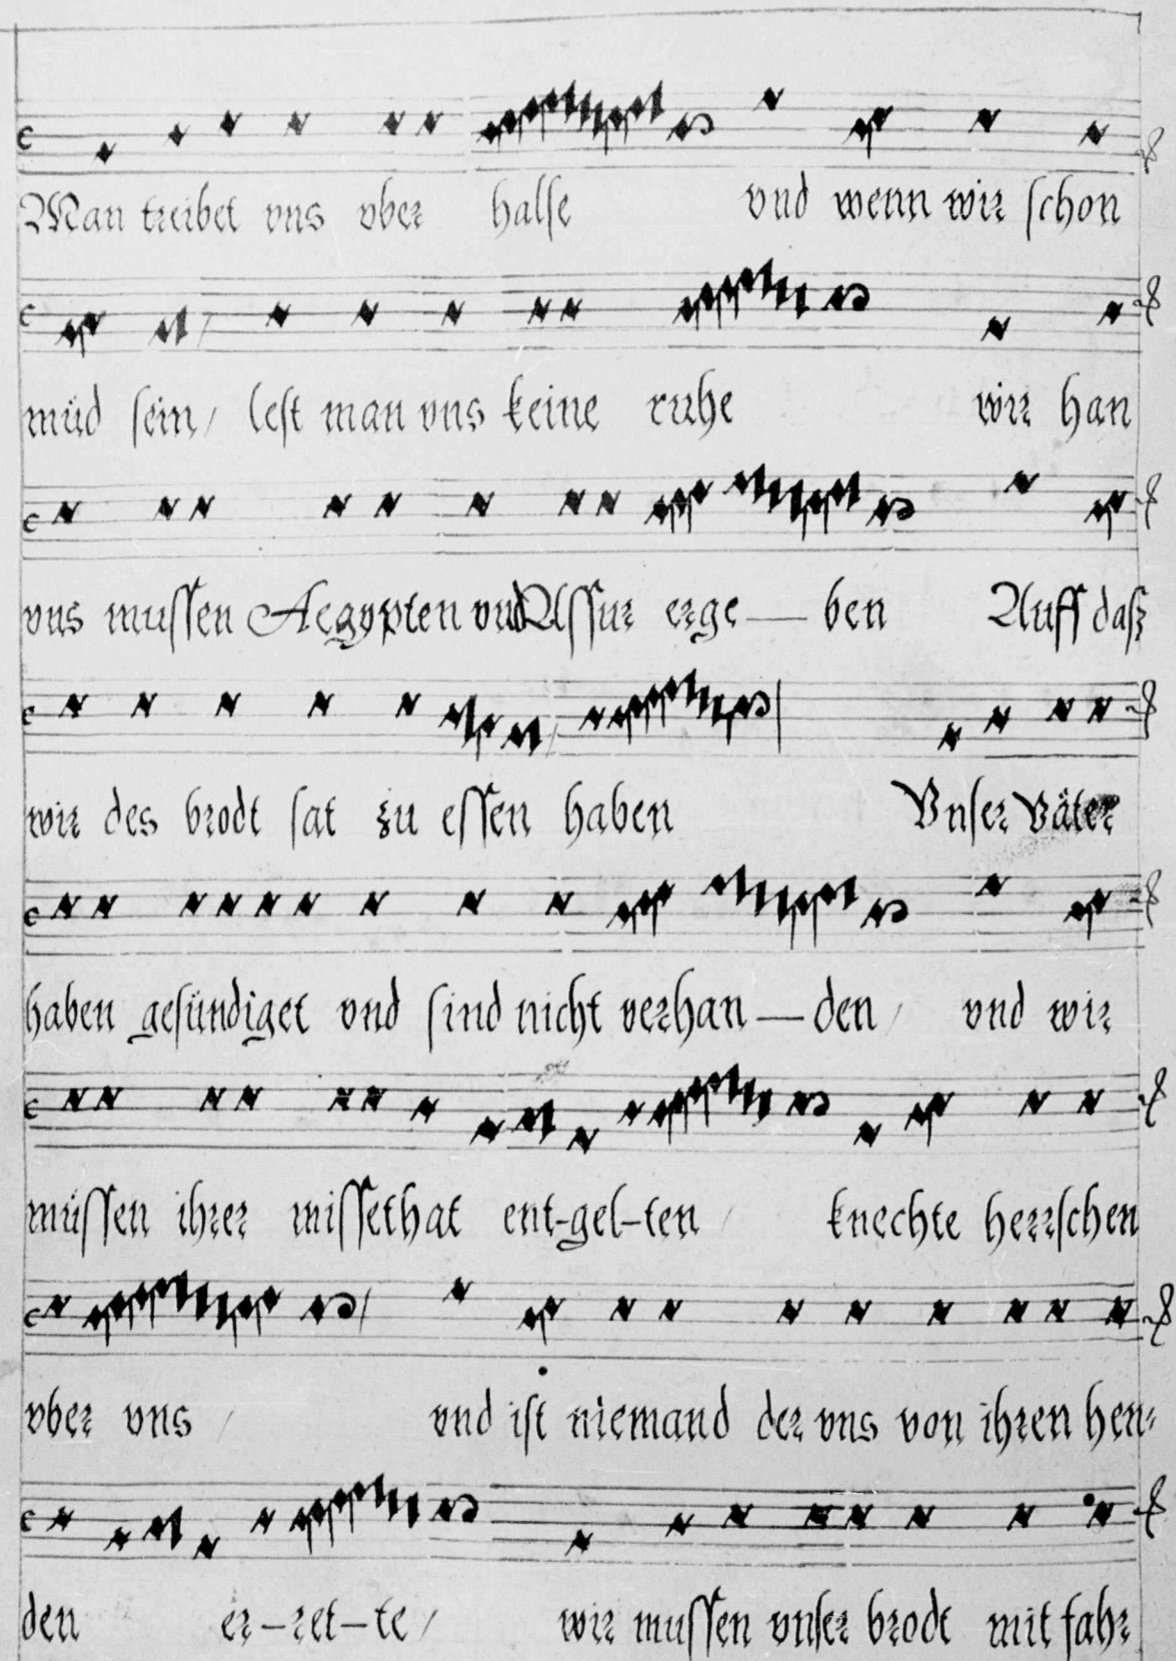 Man treibet vns vber halse vnd wenn wir schon
müd sein / lest man vns keine ruhe wir han
vns mussen Aegypten vnd Assur erge — ben Auff dasz
wir des brodt sat zu essen haben Vnser Väter
haben gesündiget vnd sind nicht verhan — den / vnd wir
müssen ihrer missethat ent-gel-ten / knechte herrschen
vber vns / vnd ist niemand der vns von ihren hen=
den er-ret-te / wir mussen vnser brodt mit fahr